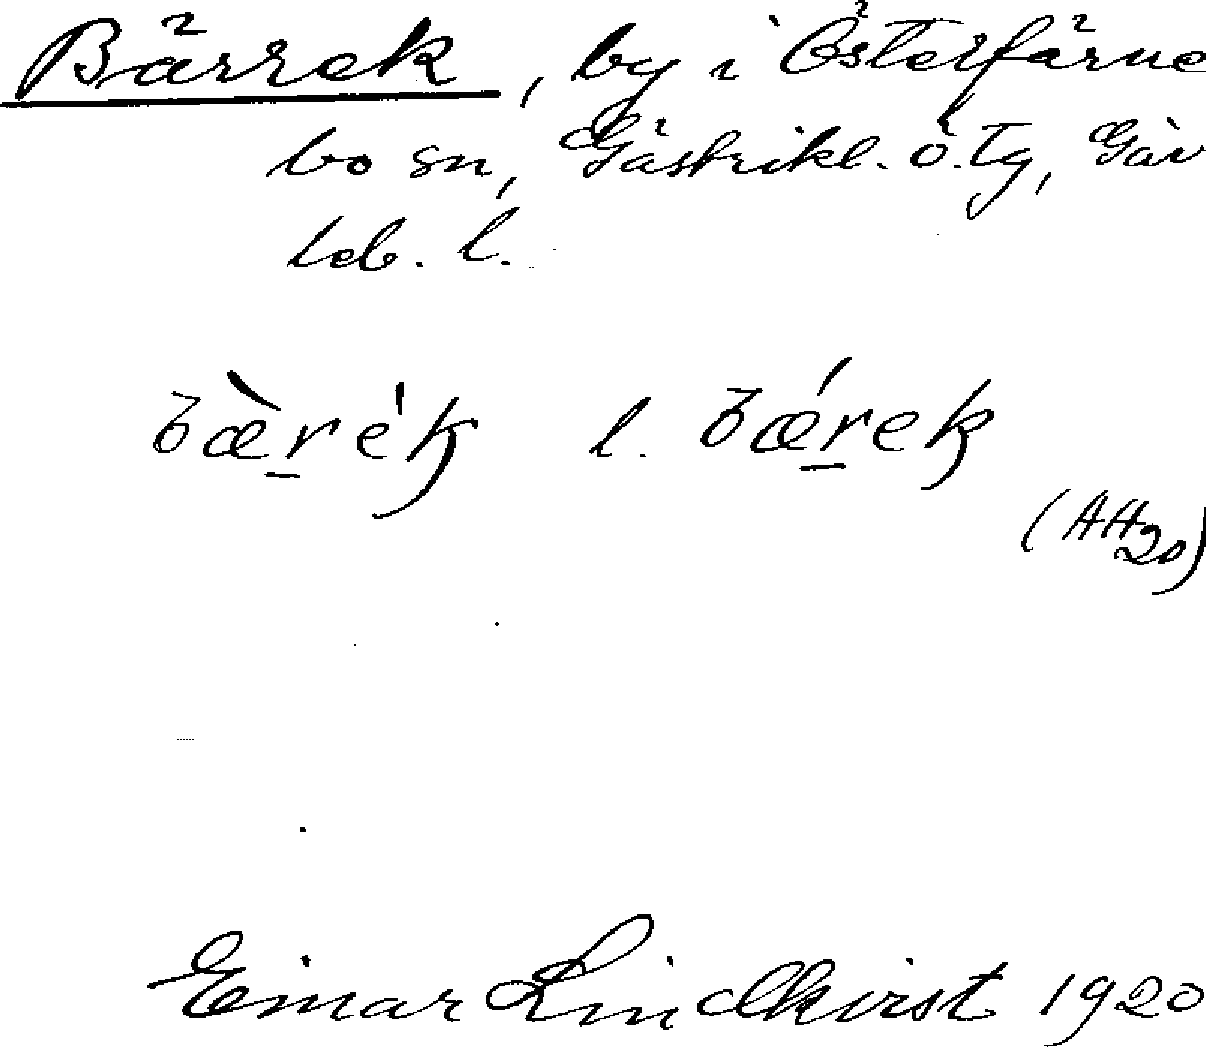 Bärrek, by i Österfärne
bo sn, Gästrikl. ö. tg, Gäv
leb. l.
bæ̀rek l. bǽrek
(AH20)
Einar Lindkvist 1920